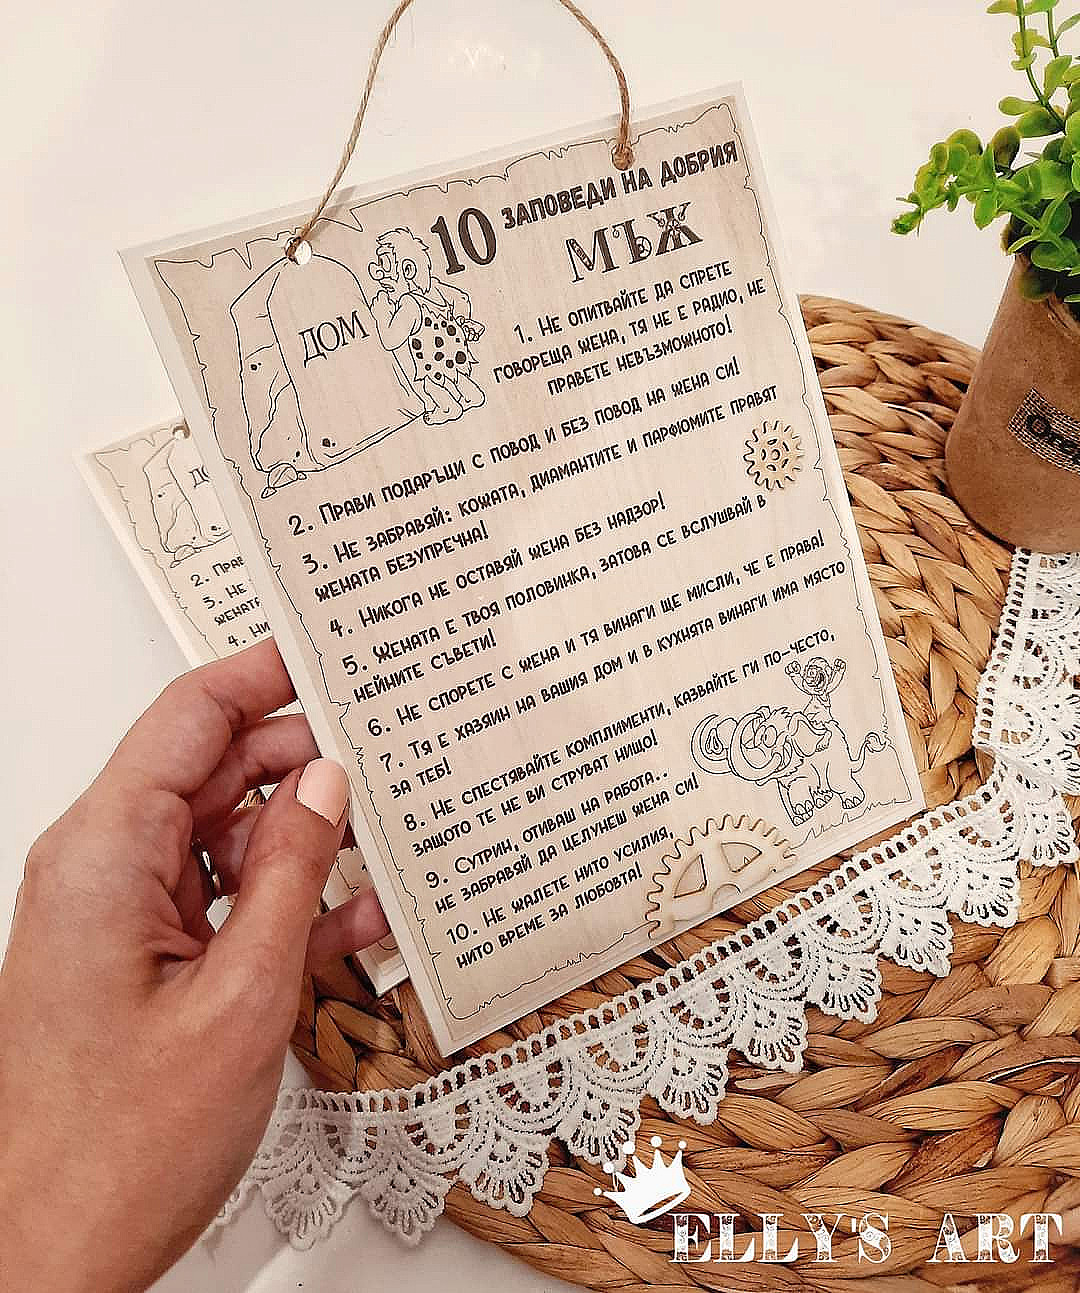 10 ЗАПОВЕДИ НА ДОБРИЯ
МЪЖ
ДОМ
1. НЕ ОПИТВАЙТЕ ДА СПРЕТЕ
ГОВОРЕЩА ЖЕНА, ТЯ НЕ Е РАДИО, НЕ
ПРАВЕТЕ НЕВЪЗМОЖНОТО!
2. ПРАВИ ПОДАРЪЦИ С ПОВОД И БЕЗ ПОВОД НА ЖЕНА СИ!
3. НЕ ЗАБРАВЯЙ: КОЖАТА, ДИАМАНТИТЕ И ПАРФЮМИТЕ ПРАВЯТ
ЖЕНАТА БЕЗУПРЕЧНА!
4. НИКОГА НЕ ОСТАВЯЙ ЖЕНА БЕЗ НАДЗОР!
5. ЖЕНАТА Е ТВОЯ ПОЛОВИНКА, ЗАТОВА СЕ ВСЛУШВАЙ В
НЕЙНИТЕ СЪВЕТИ!
6. НЕ СПОРЕТЕ С ЖЕНА И ТЯ ВИНАГИ ЩЕ МИСЛИ, ЧЕ Е ПРАВА!
7. ТЯ Е ХАЗЯИН НА ВАШИЯ ДОМ И В КУХНЯТА ВИНАГИ ИМА МЯСТО
ЗА ТЕБ!
8. НЕ СПЕСТЯВАЙТЕ КОМПЛИМЕНТИ, КАЗВАЙТЕ ГИ ПО-ЧЕСТО,
ЗАЩОТО ТЕ НЕ ВИ СТРУВАТ НИЩО!
9. СУТРИН, ОТИВАШ НА РАБОТА..
НЕ ЗАБРАВЯЙ ДА ЦЕЛУНЕШ ЖЕНА СИ!
10. НЕ ЖАЛЕТЕ НИТО УСИЛИЯ,
НИТО ВРЕМЕ ЗА ЛЮБОВТА!
ДО
2. ПРАВ
3. НЕ
ЖЕНАТА
4. НИ
ELLY'S ART